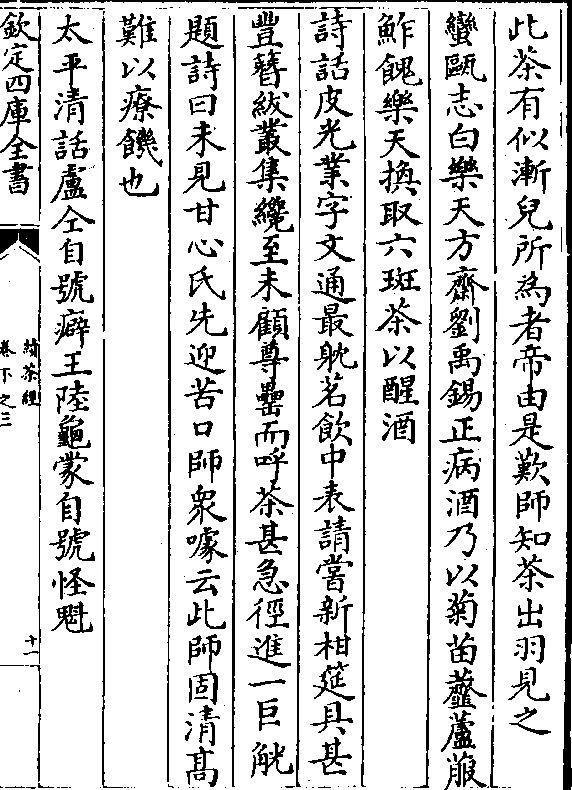 此茶有似漸兒所為者帝由是歎師知茶出羽見之
蠻甌志白樂天方齋劉禹錫正病酒乃以菊苗虀蘆菔
鮓餽樂天換取六斑茶以醒酒
詩話皮光業字文通最躭茗飲中表請嘗新柑筵具甚
豐簪紱叢集纔至未顧尊罍而呼茶甚急徑進一巨觥
題詩曰未見甘心氏先迎苦口師衆噱云此師固清髙
難以療饑也
太平清話盧仝自號癖王陸龜蒙自號怪魁
欽定四庫全書
續茶經
卷下之三
十一